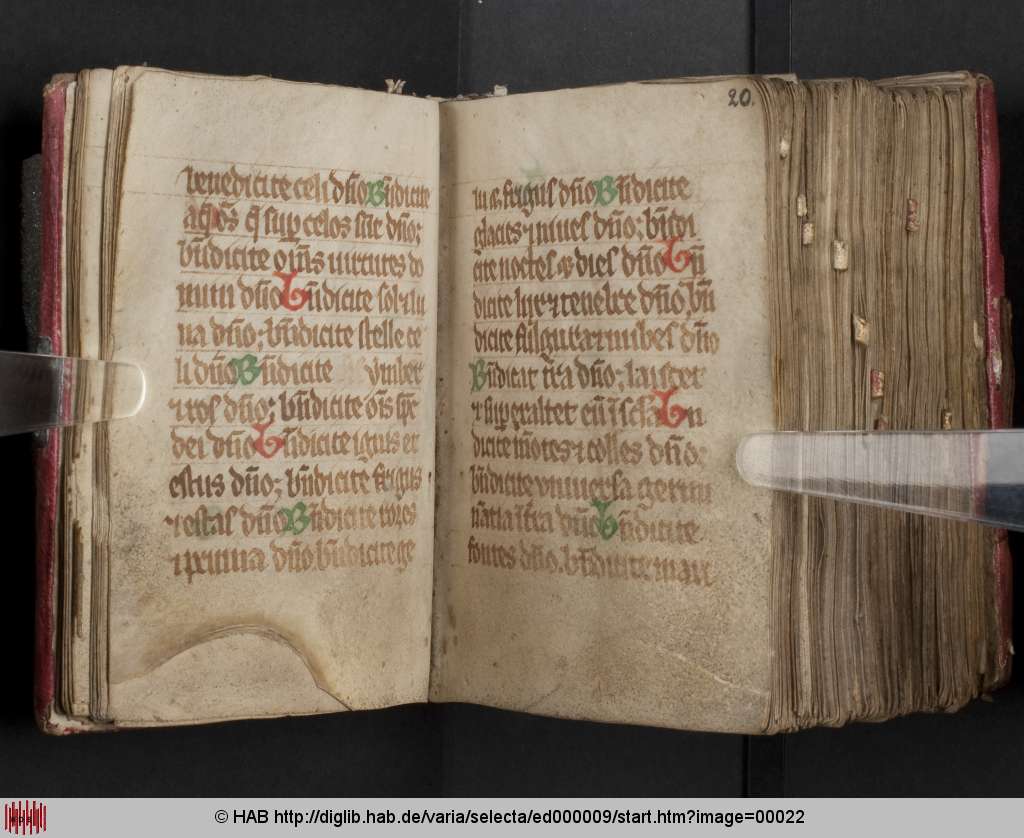 benedicite celi dn̄o Bn̄dicite
aq̄ om̄s q̄ sup celos sūt dn̄o;
bn̄dicite om̄s uirtutes do
mini dn̄o bn̄dicite sol ⁊ lu
na dn̄o; bn̄dicite stelle ce
li dn̄o Bn̄dicite ymber
⁊ ros dn̄o; bn̄dicite om̄s sp̄c
dei dn̄o bn̄dicite ignis et
estus dn̄o; bn̄dicite frigus
⁊ estas dn̄o Bn̄dicite rores
⁊ pruina dn̄o bn̄dicite ge
20.
lu & frigus dn̄o Bn̄dicite
glacies ⁊ niues dn̄o; bn̄di
cite noctes & dies dn̄o bn̄
dicite lux ⁊ tenebre dn̄o bn̄
dicite fulgura ⁊ nubes dn̄o
Bn̄dicat t̄ra dn̄o; laudet
⁊ supexaltet eū ī scl̄a Bn̄
dicite mōtes ⁊ colles dn̄o:
bn̄dicite vniuersa germi
nātia ī t̄ra dn̄o bn̄dicite
fontes dn̄o. bn̄dicite mari
© HAB http://diglib.hab.de/varia/selecta/ed000009/start.htm?image=00022